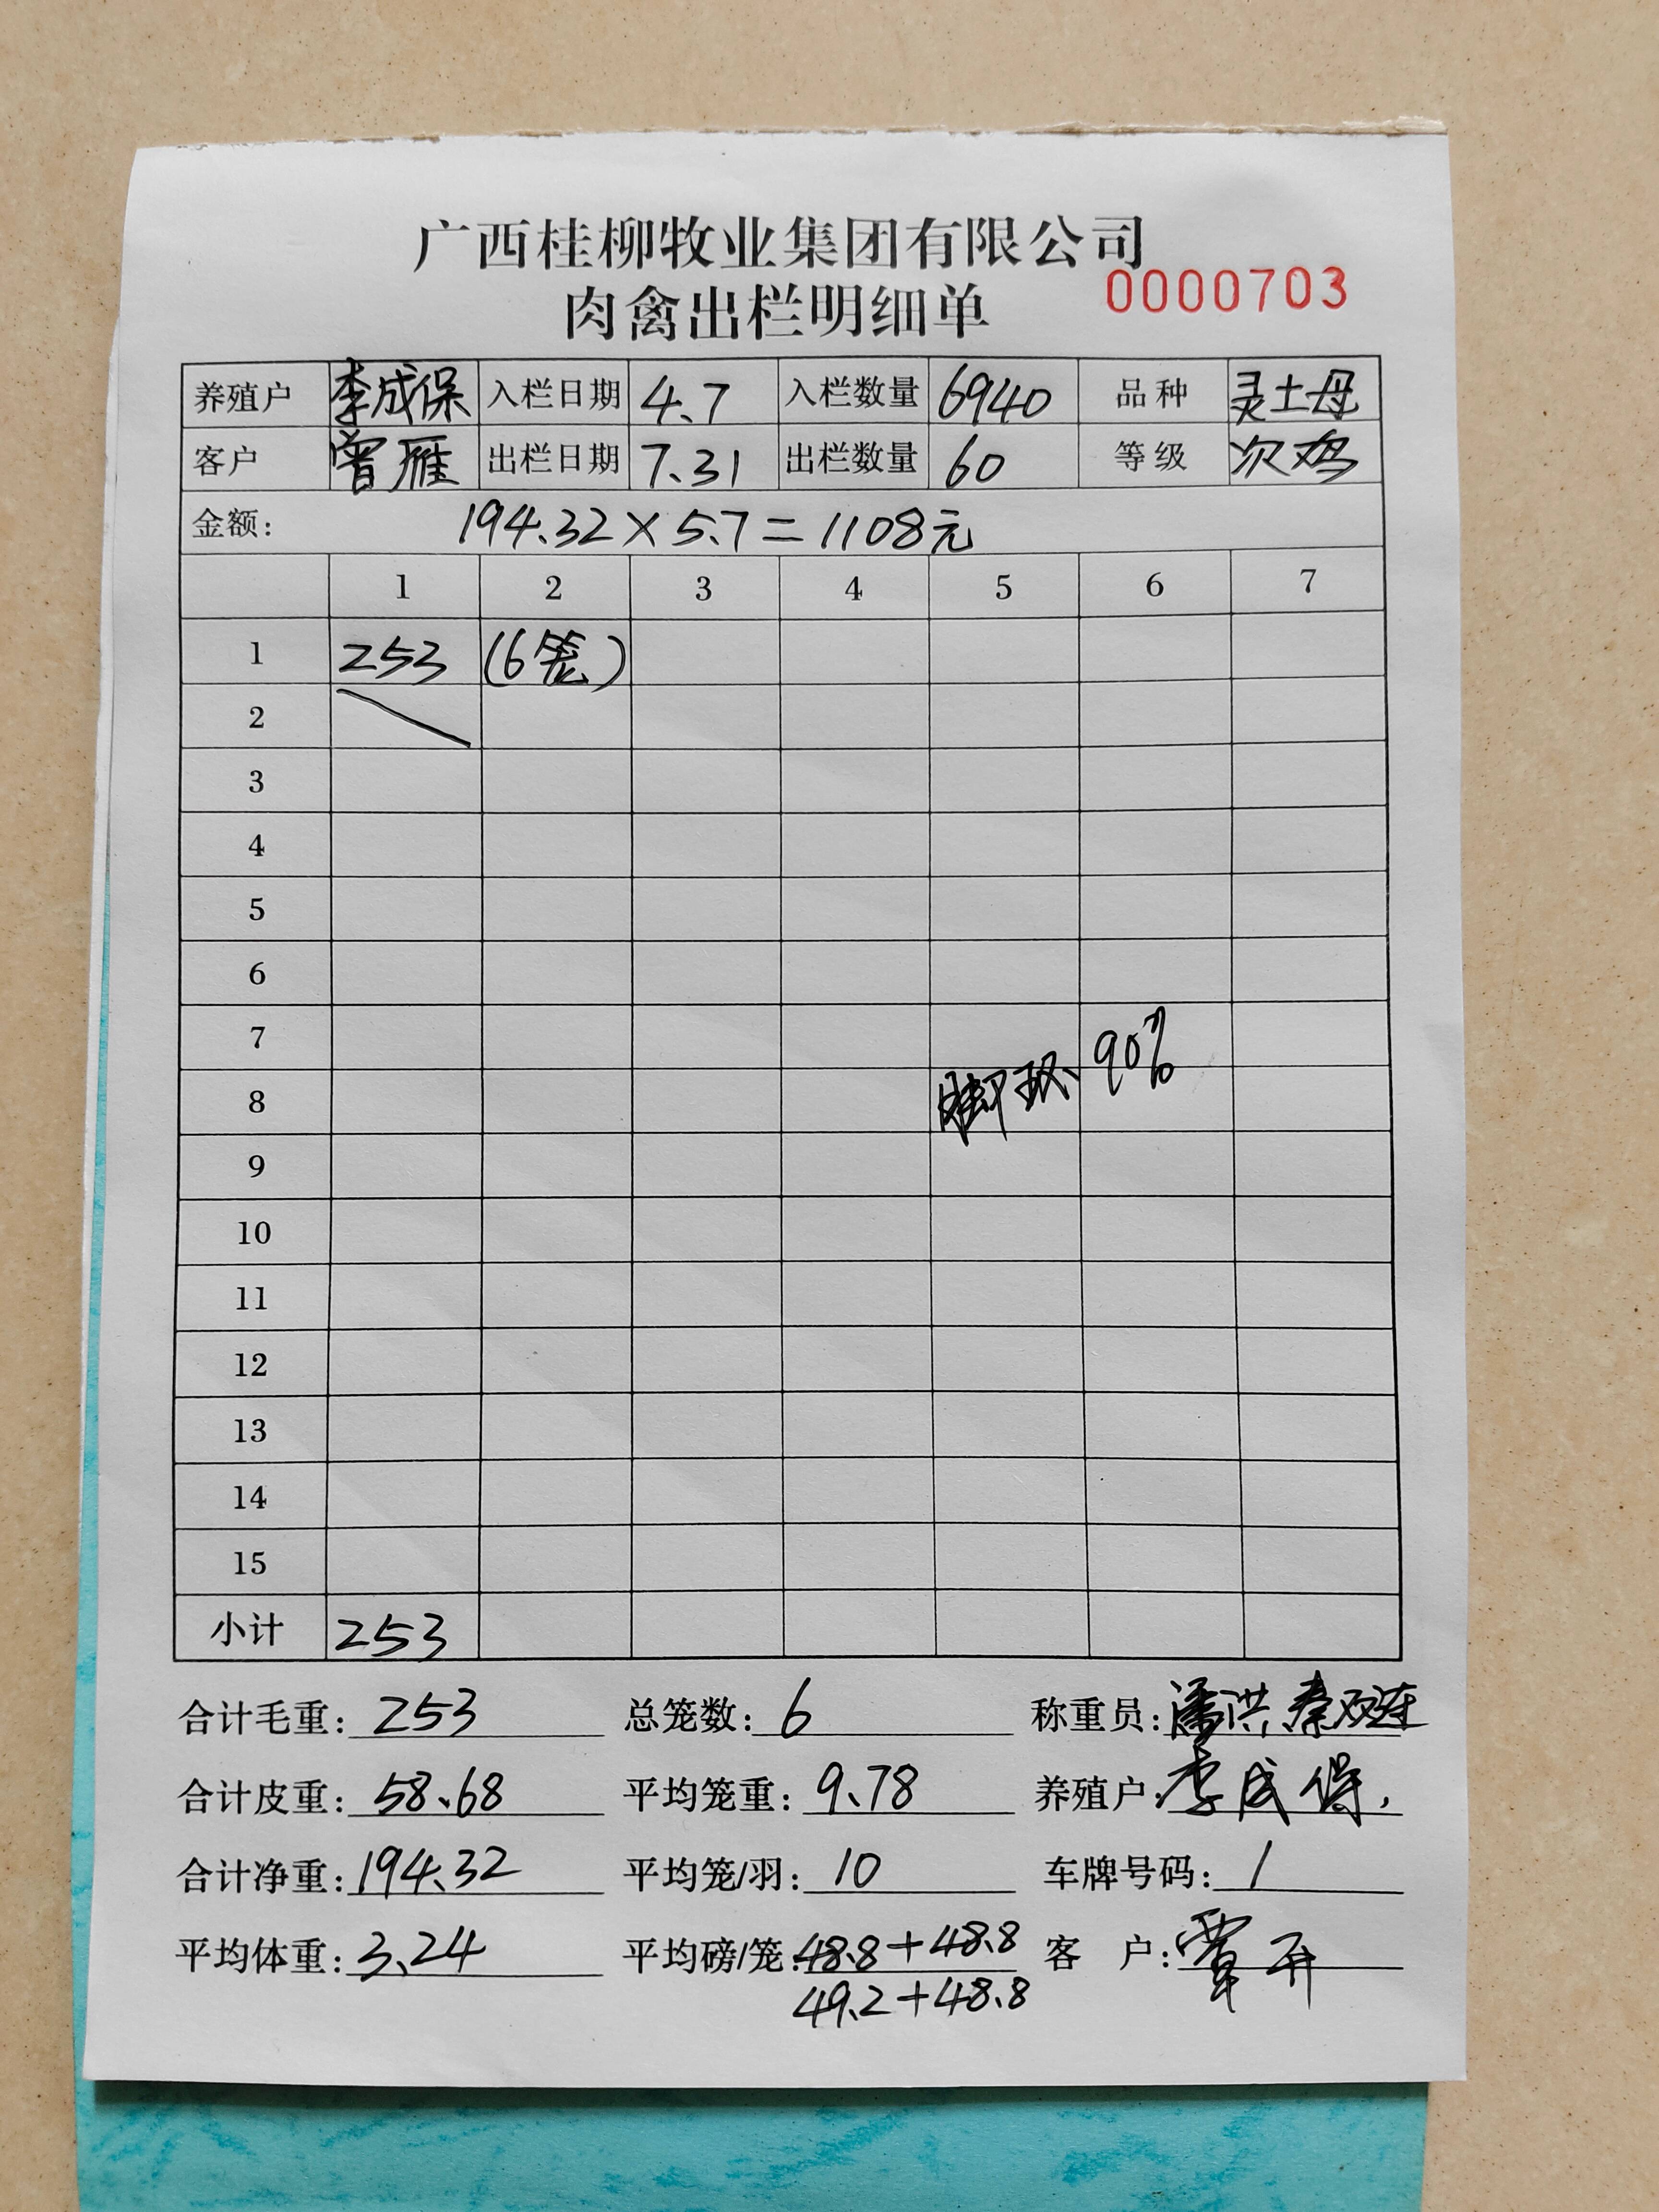 广西桂柳牧业集团有限公司
肉禽出栏明细单 0000703
养殖户 李成保 入栏日期 4.7 入栏数量 6940 品种 灵土母
客户 曾雁 出栏日期 7.31 出栏数量 60 等级 次鸡
金额: 194.32×5.7=1108元
1 2 3 4 5 6 7
1 253 (6笼)
2
3
4
5
6
7
8 脚环、90%
9
10
11
12
13
14
15
小计 253
合计毛重: 253 总笼数: 6 称重员: 潘洪 秦双连
合计皮重: 58.68 平均笼重: 9.78 养殖户: 李成保
合计净重: 194.32 平均笼/羽: 10 车牌号码: 1
平均体重: 3.24 平均磅/笼: 48.8+48.8 客 户: 覃
49.2+48.8